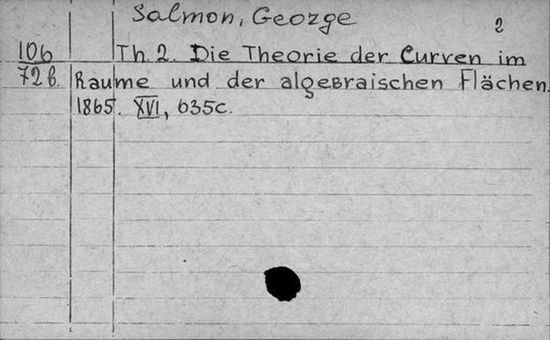 Salmon, George
2
106 Th. 2. Die Theorie der Curven im
72b. Raume und der algebraischen Flächen.
1865. XVI, 635c.